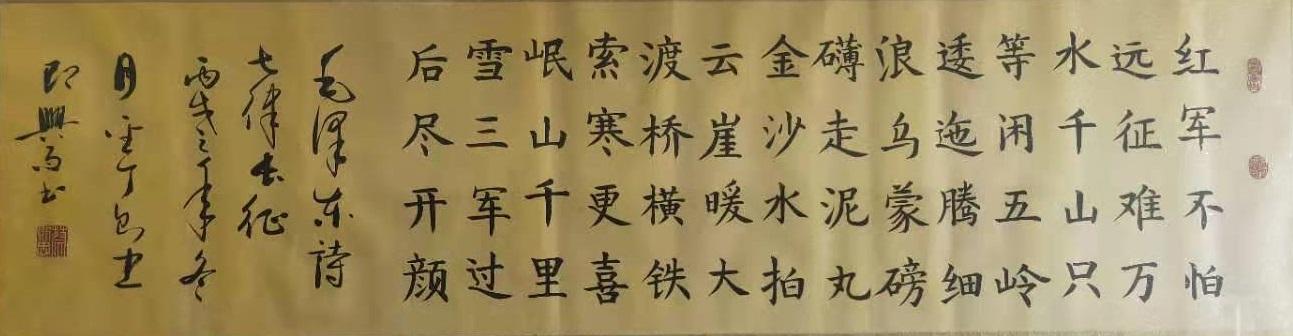 红军不怕
远征难万
水千山只
等闲五岭
逶迤腾细
浪乌蒙磅
礴走泥丸
金沙水拍
云崖暖大
渡桥横铁
索寒更喜
岷山千里
雪三军过
后尽开颜
毛澤东詩
七律长征
丙戌之年冬
月
即興而书